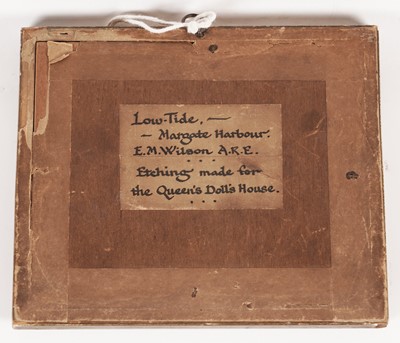 Low-Tide, —
— Margate Harbour.
E.M. Wilson A.R.E.
Etching made for
the Queen's Doll's House.